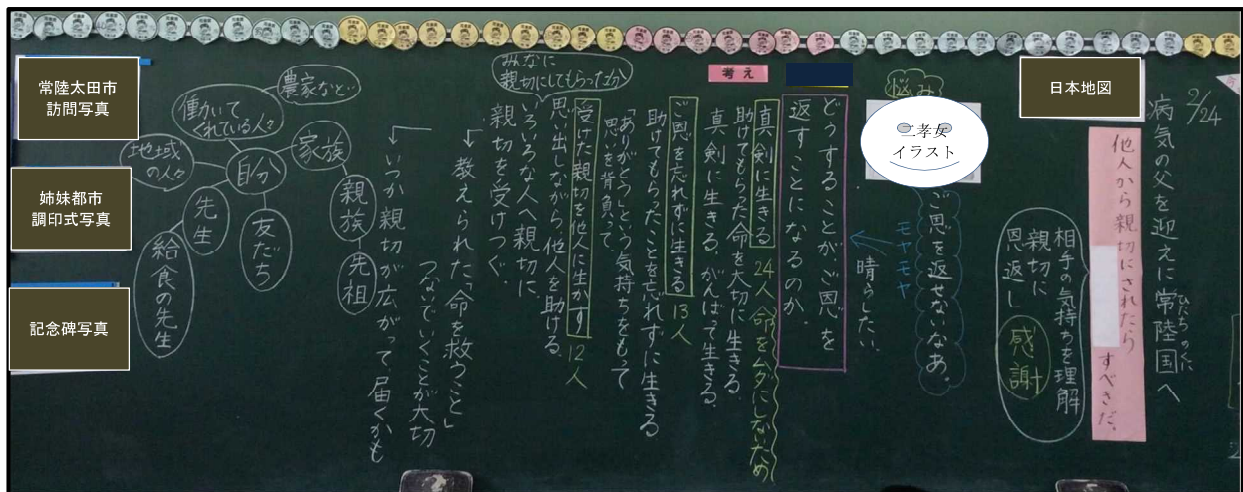 2/24
病気の父を迎えに常陸国へ
ひたちのくに
日本地図
他人から親切にされたら
すべきだ。
相手の気持ちを理解
親切に
恩返し
感謝
悩み
二孝女
イラスト
ご恩を返せないなあ。
モヤモヤ
晴らしたい。
どうすることが、ご恩を
返すことになるのか。
考え
真剣に生きる 24人 命をムダにしないため
助けてもらった命を大切に生きる
真剣に生きる。がんばって生きる。
ご恩を忘れずに生きる 13人
助けてもらったことを忘れずに生きる
「ありがとう」という気持ちをもって
思いを背負って。
受けた親切を他人に生かす 12人
思い出しながら他人を助ける
いろいろな人へ親切に
親切を受けつぐ。
みんなに
親切にしてもらったから
教えられた「命を救うこと」
つないでいくことが大切
いつか親切が広がって届くかも
自分
家族
親族
先祖
友だち
先生
給食の先生
地域
の人々
働いて
くれている人々
農家など…
常陸太田市
訪問写真
姉妹都市
調印式写真
記念碑写真